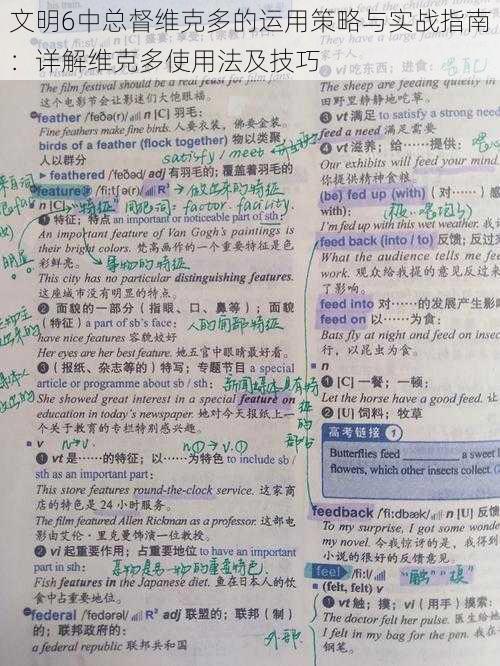 文明6中总督维克多的运用策略与实战指南
：详解维克多使用法及技巧
The film festival should be a real feast for film
这个电影节会让影迷们大饱眼福。
feather /ˈfeðə(r)/ n [C] 羽毛：
Fine feathers make fine birds. 人要衣装，佛要金装。
birds of a feather (flock together) 物以类聚，
人以群分
satisfy / meet
feathered /ˈfeðəd/ adj 有羽毛的；覆盖着羽毛的
feature /ˈfiːtʃə(r)/ R² → 做出来的特征
n "特征" 同根词: factor. facility.
① 特征；特点 an important or noticeable part of sth:
An important feature of Van Gogh's paintings is
their bright colors. 梵高画作的一个重要特征是色
彩鲜亮。
事物的特征
This city has no particular distinguishing features.
这座城市没有明显的特点。
② 面貌的一部分（指眼、口、鼻等）；面貌
（特征）a part of sb's face: 人的面部特征
have nice features 容貌姣好
Her eyes are her best feature. 她五官中眼睛最好看。
③（报纸、杂志等的）特写；专题节目 a special
article or programme about sb / sth:
She showed great interest in a special feature on
education in today's newspaper. 她对今天报纸上一
个关于教育的专栏特别感兴趣。
v n→v. n① → v.①
① vt 是……的特征；以……为特色 to include sb /
sth as an important part:
This store features round-the-clock service. 这家商
店的特色是 24 小时服务。
The film featured Allen Rickman as a professor. 这部电
影由艾伦·里克曼饰演一位教授。
② vi 起重要作用；占重要地位 to have an important
part in sth:
Fish features in the Japanese diet. 鱼在日本人的饮
食中占重要地位。
federal /ˈfedərəl/ R² adj 联盟的；联邦（制）
的；联邦政府的：
a federal republic 联邦共和国
② vi 吃东西；进食：
The sheep are feeding quietly in
田野里静静地吃草。
③ vt 满足 to satisfy a strong need
feed a need 满足需要
④ vt 滋养；给……提供：
Our exhibits will feed your mind
你提供精神食粮。
(be) fed up (with)（对……）
with):
I'm fed up with this wet weather.
feed back (into / to) 反馈；反过
What the audience tells me fee
work. 观众给我提的意见反过来
了影响。
feed into 对……的发展产生影
feed on 以……为食：
Bats fly at night and feed on insect
行，以昆虫为食。
n
① [C] 一餐；一顿：
Let the horse have a good feed. 让
② [U] 饲料；牧草
高考链接 1
Butterflies feed ______ a sweet l
flowers, which other insects collect. (
feedback /ˈfiːdbæk/ n [U] 反馈
To my surprise, I got some wonde
my novel. 令我惊讶的是，我得到
小说的很好的反馈意见。
feel /fiːl/ "触"
(felt, felt) v
① vt 触；摸；vi（用手）摸索：
The doctor felt her pulse. 医生给她
I felt in my bag for the pen. 我在
钢笔。